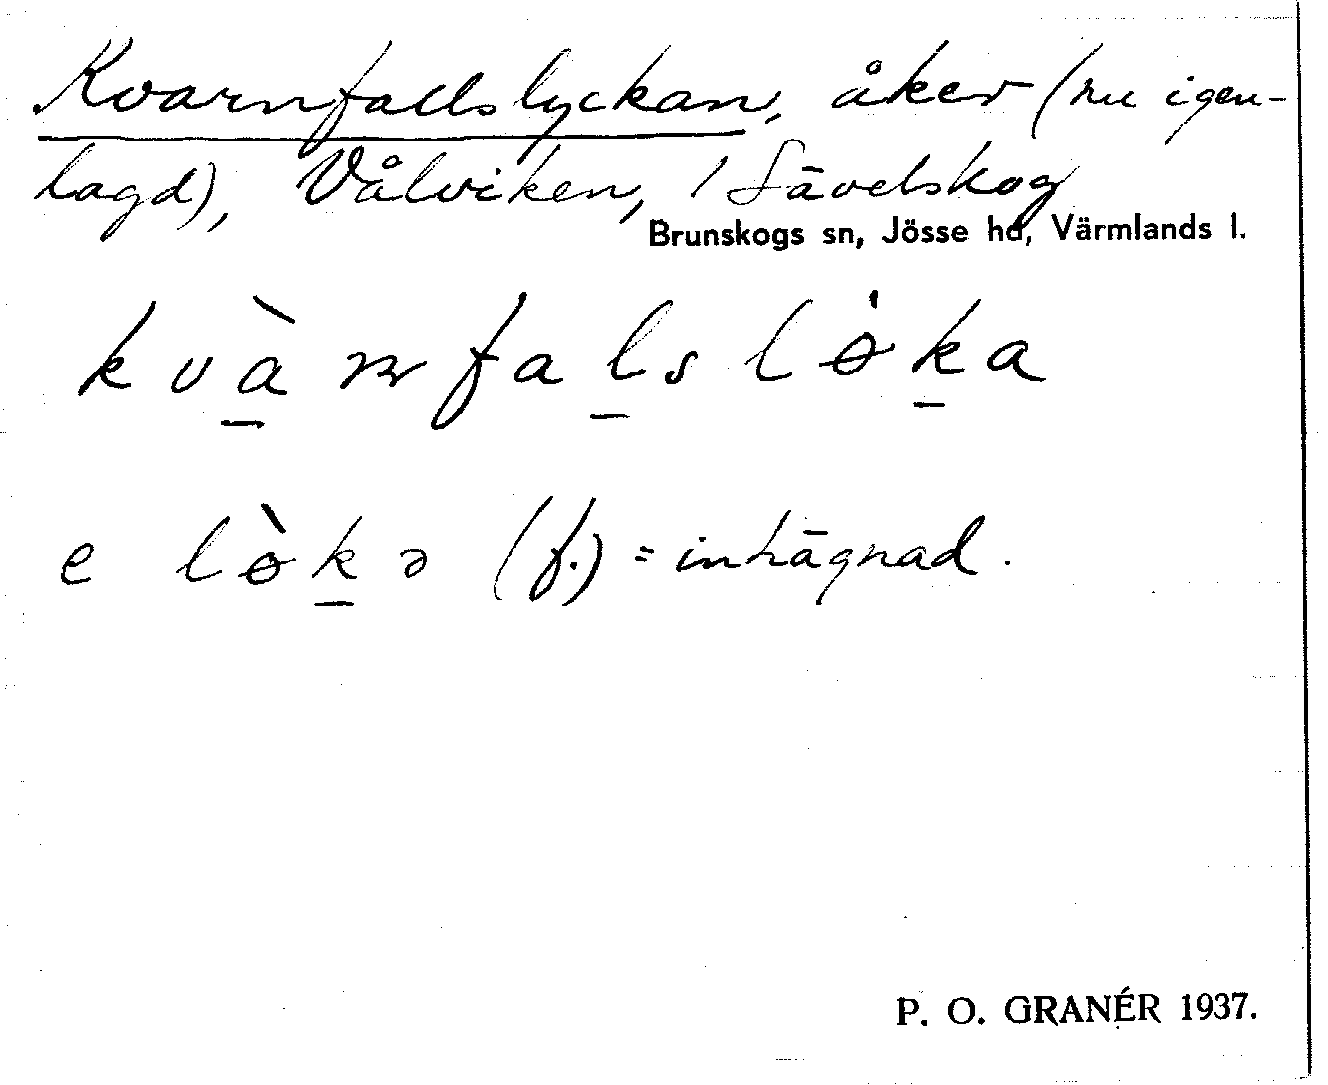 Kvarnfallslyckan, åker (nu igen-
lagd), Vålviken, 1 Sävelskog
Brunskogs sn, Jösse hd, Värmlands l.
kvà̱ɳfaḻslɵ̍ḵa
e lɵ̀ḵə (f.) = inhägnad.
P. O. GRANÉR 1937.